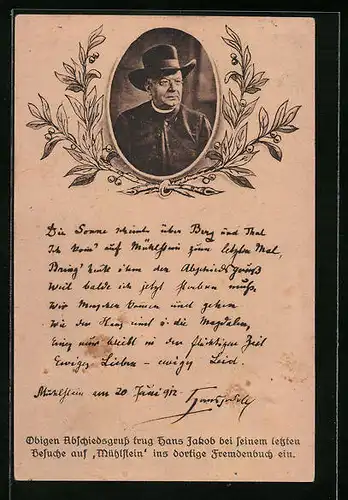 Die Sonne scheint über Berg und Thal
Ich komm' auf Mühlstein zum letzten Mal,
Bring' heute ihm den Abschiedsgruß
Weil balde ich jetzt sterben muß.
Wir Menschen kommen und gehen
Wie der Hans und d. die Magdalen,
Eines nur bleibt in der flüchtigen Zeit
Ewiges Lieben – ewiges Leid.
Mühlstein am 20 Juni 912
Hansjakob
Obigen Abschiedsgruß trug Hans Jakob bei seinem letzten
Besuche auf „Mühlstein“ ins dortige Fremdenbuch ein.